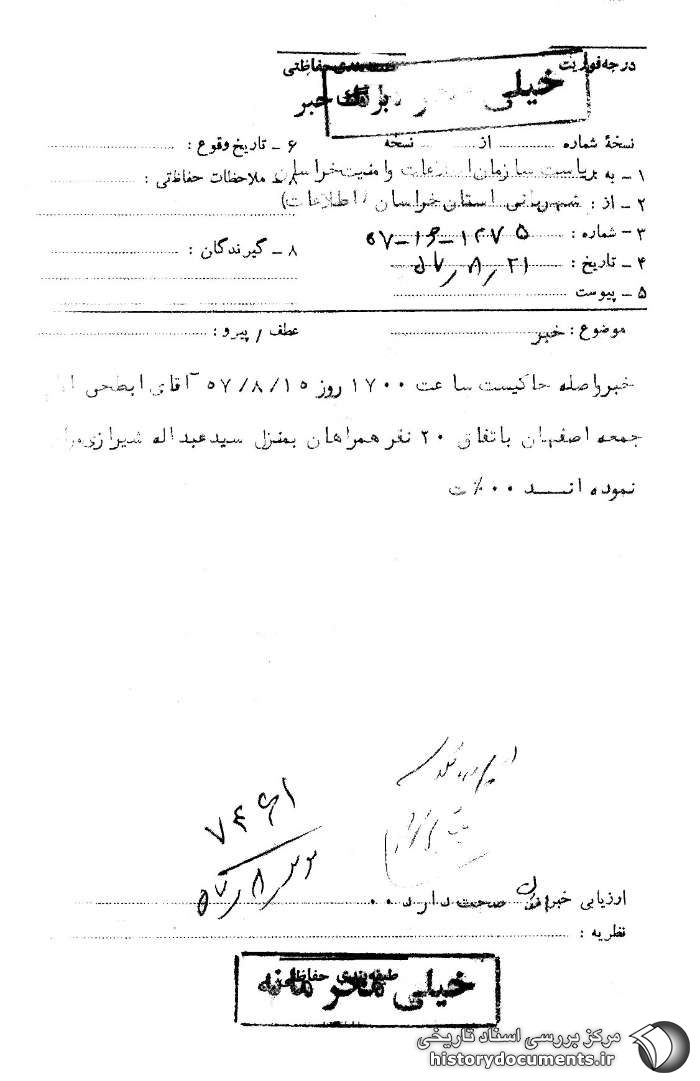 درجه فوریت
طبقه‌بندی حفاظتی
خیلی
برگ خبر
نسخهٔ شماره از نسخه
۶ ـ تاریخ وقوع :
۱ ـ به : ریاست سازمان اطلاعات و امنیت خراسان
۸ ـ ملاحظات حفاظتی :
۲ ـ از : شهربانی استان خراسان (اطلاعات)
۳ ـ شماره :
۸ ـ گیرندگان :
۴ ـ تاریخ : ۵۷٫۸٫۲۱
۵ ـ پیوست
موضوع : خبر
عطف / پیرو :
خبر واصله حاکیست ساعت ۱۷۰۰ روز ۵۷/۸/۱۵ آقای ابطحی
جمعه اصفهان باتفاق ۲۰ نفر همراهان بمنزل سیدعبداله شیرازی
نموده اند ۰۰
ارزیابی خبر صحت دارد ۰۰
نظریه :
طبقه‌بندی حفاظتی
خیلی محرمانه
مرکز بررسی اسناد تاریخی
historydocuments.ir